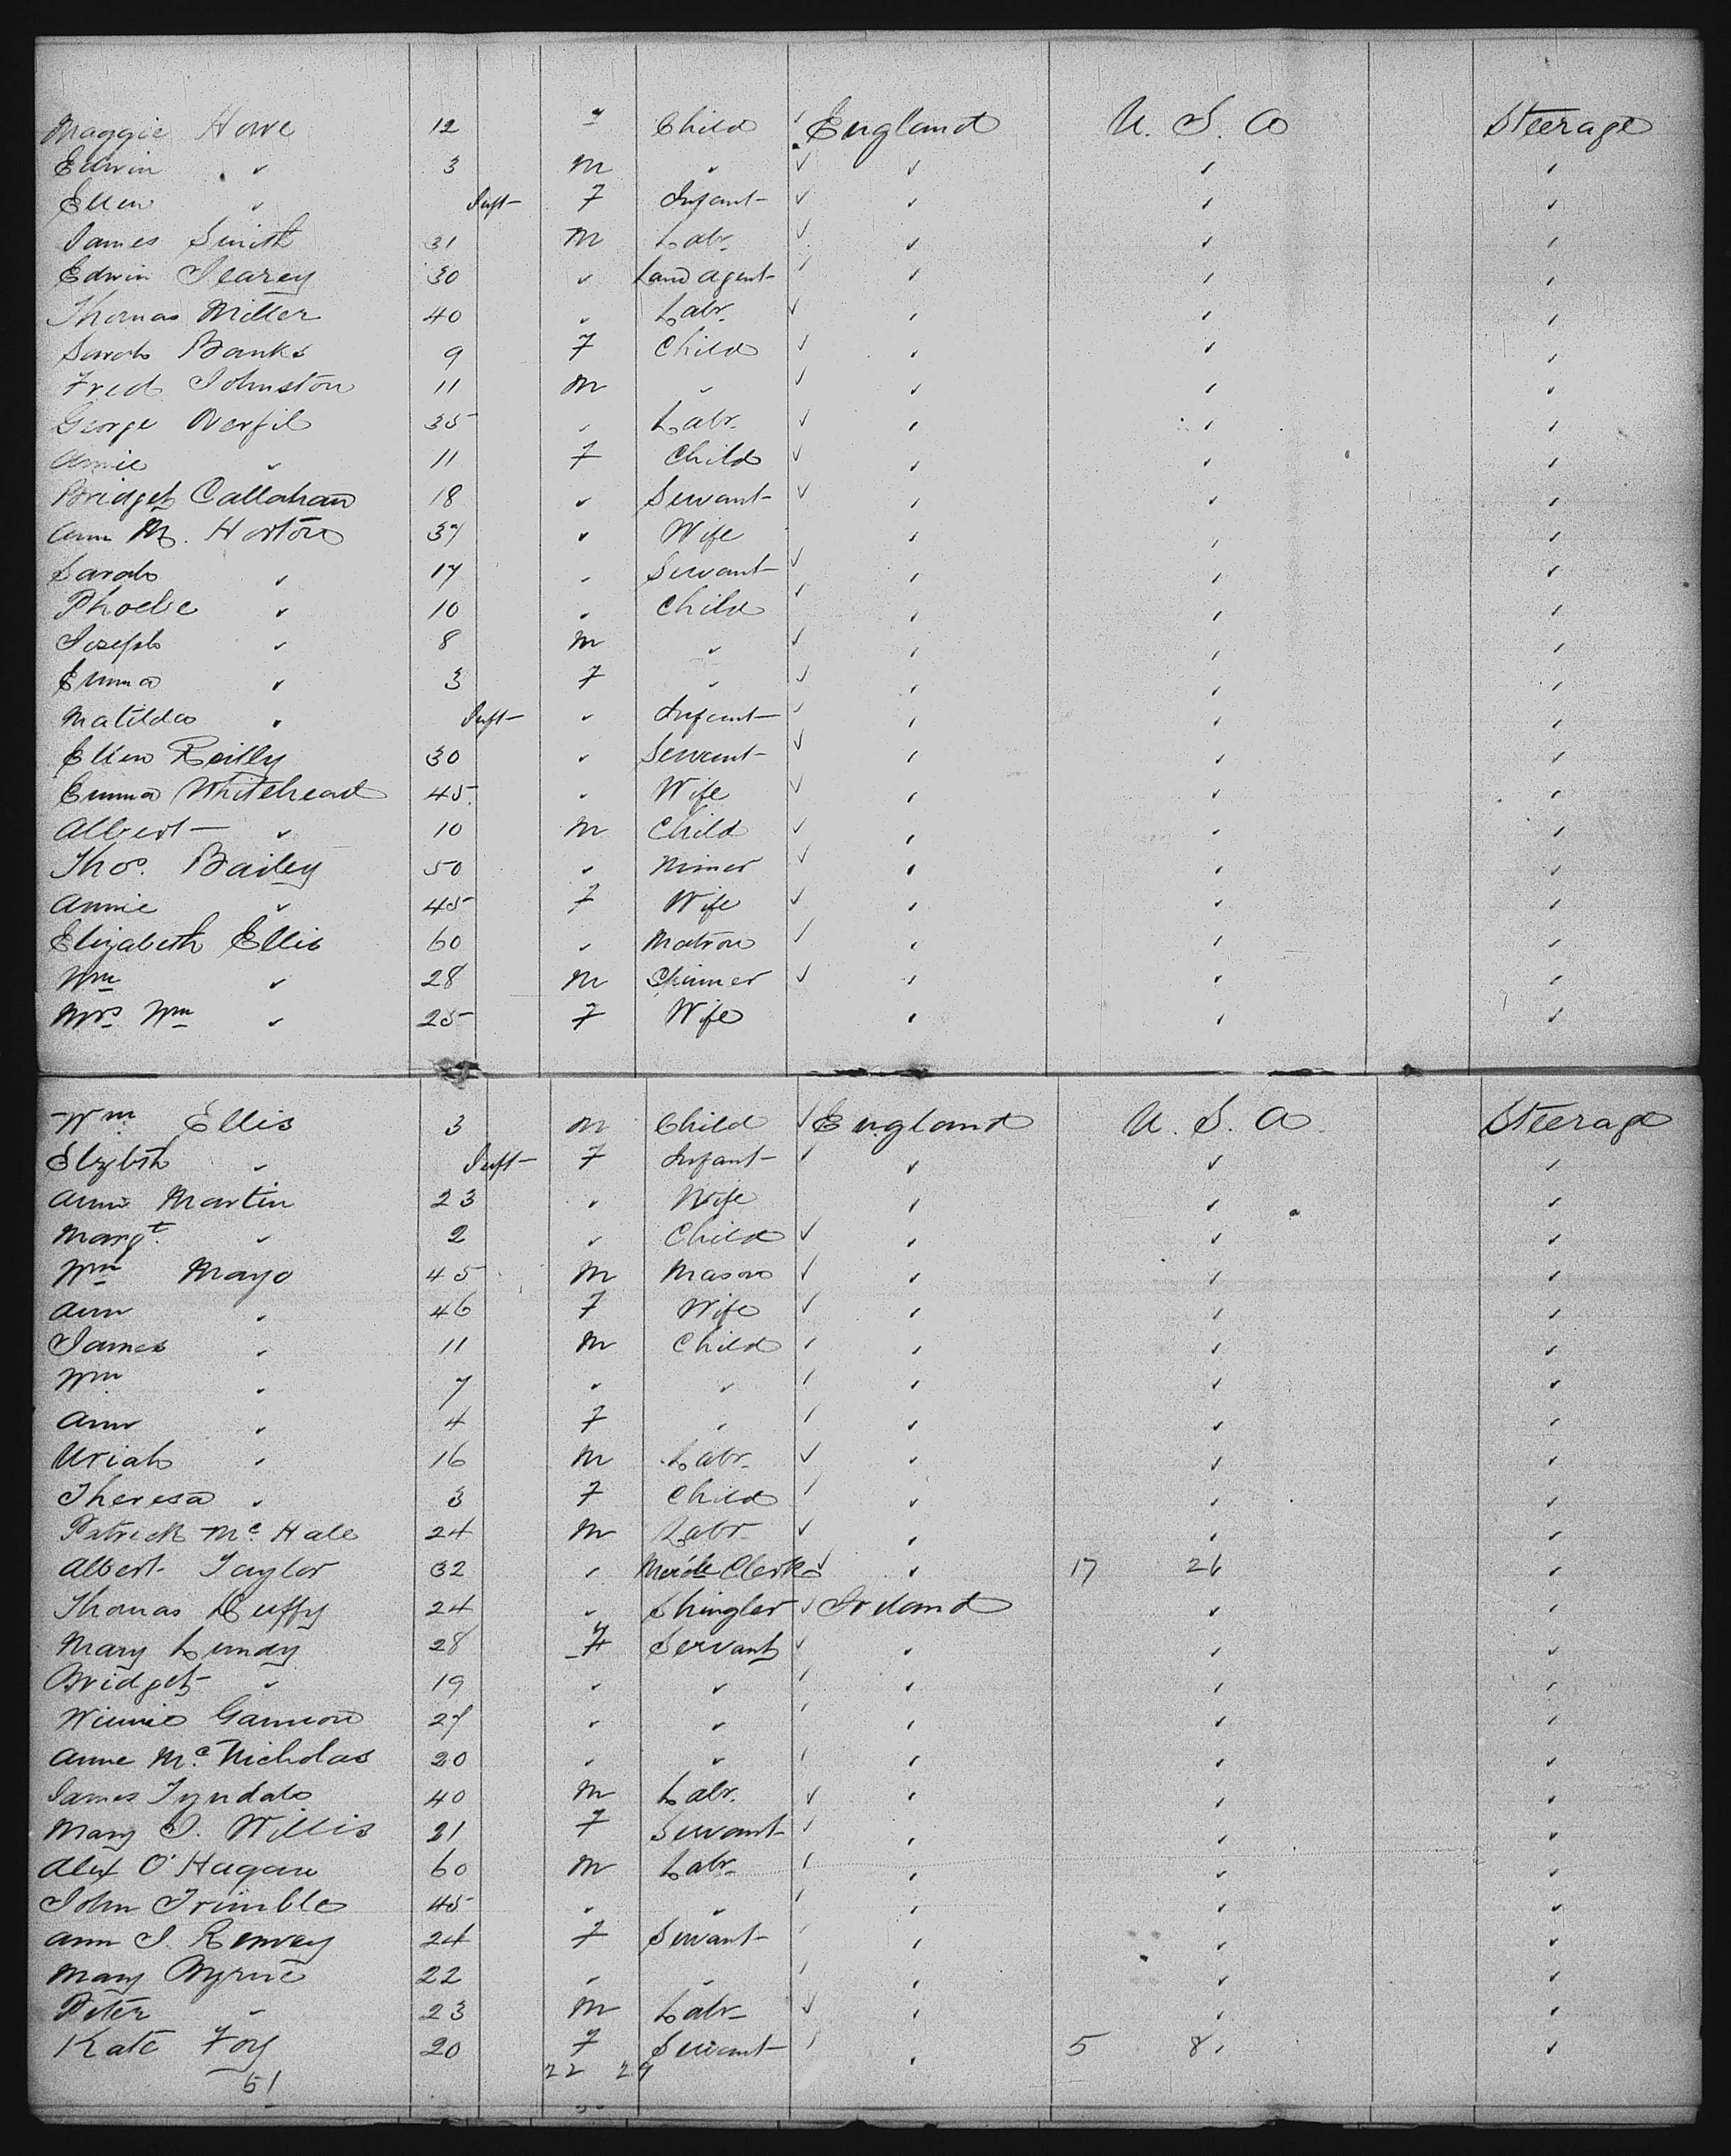 Maggie Howe 12 " Child ✓ England U. S. A Steerage
Edwin " 3 M " ✓ " " "
Ellen " Inft F Infant ✓ " " "
James Smith 31 M Labr. ✓ " " "
Edwin Searey 30 " Land Agent ✓ " " "
Thomas Miller 40 " Labr. ✓ " " "
Sarah Banks 9 F Child ✓ " " "
Fred Johnston 11 M " ✓ " " "
George Overfil 35 " Labr. ✓ " " "
Annie " 11 F Child ✓ " " "
Bridget Callahan 18 " Servant ✓ " " "
Ann M. Horton 37 " Wife " " "
Sarah " 17 " Servant ✓ " " "
Phoebe " 10 " Child ✓ " " "
Joseph " 8 M " ✓ " " "
Emma " 3 F " ✓ " " "
Matilda " Inft " Infant ✓ " " "
Ellen Reilly 30 " Servant ✓ " " "
Emma Whitehead 45 " Wife ✓ " " "
Albert " 10 M Child ✓ " " "
Thos. Bailey 50 " Miner ✓ " " "
Annie " 45 F Wife ✓ " " "
Elizabeth Ellis 60 " Matron ✓ " " "
Wm " 28 M Spinner ✓ " " "
Mrs Wm " 25 F Wife " " "
Wm Ellis 3 M Child ✓ England U. S. A. Steerage
Elizbth " Inft F Infant ✓ " " "
Anne Martin 23 " Wife " " "
Margt. " 2 " Child ✓ " " "
Wm Mayo 45 M Mason ✓ " " "
Ann " 46 F Wife ✓ " " "
James " 11 M Child ✓ " " "
Wm " 7 " " ✓ " " "
Ann " 4 F " ✓ " " "
Uriah " 16 M Labr. ✓ " " "
Theresa " 3 F Child ✓ " " "
Patrick Mc Hale 24 M Labr ✓ " " "
Albert Taylor 32 " Clerk ✓ " 17 26 "
Thomas Duffy 24 " Shingler ✓ Ireland " "
Mary Lundy 28 F Servant ✓ " " "
Bridget " 19 " " ✓ " " "
Winnie Gannon 27 " " ✓ " " "
Anne Mc Nicholas 20 " " ✓ " " "
James Tyndals 40 M Labr. ✓ " " "
Mary J. Willis 21 F Servant ✓ " " "
Alex O'Hagan 60 M Labr ✓ " " "
John Trimble 45 " " ✓ " " "
Ann J. 24 F Servant ✓ " " "
Mary Byrne 22 " " ✓ " " "
Peter " 23 M Labr ✓ " " "
Kate Foy 20 F Servant ✓ " 5 8 " "
51 22 29